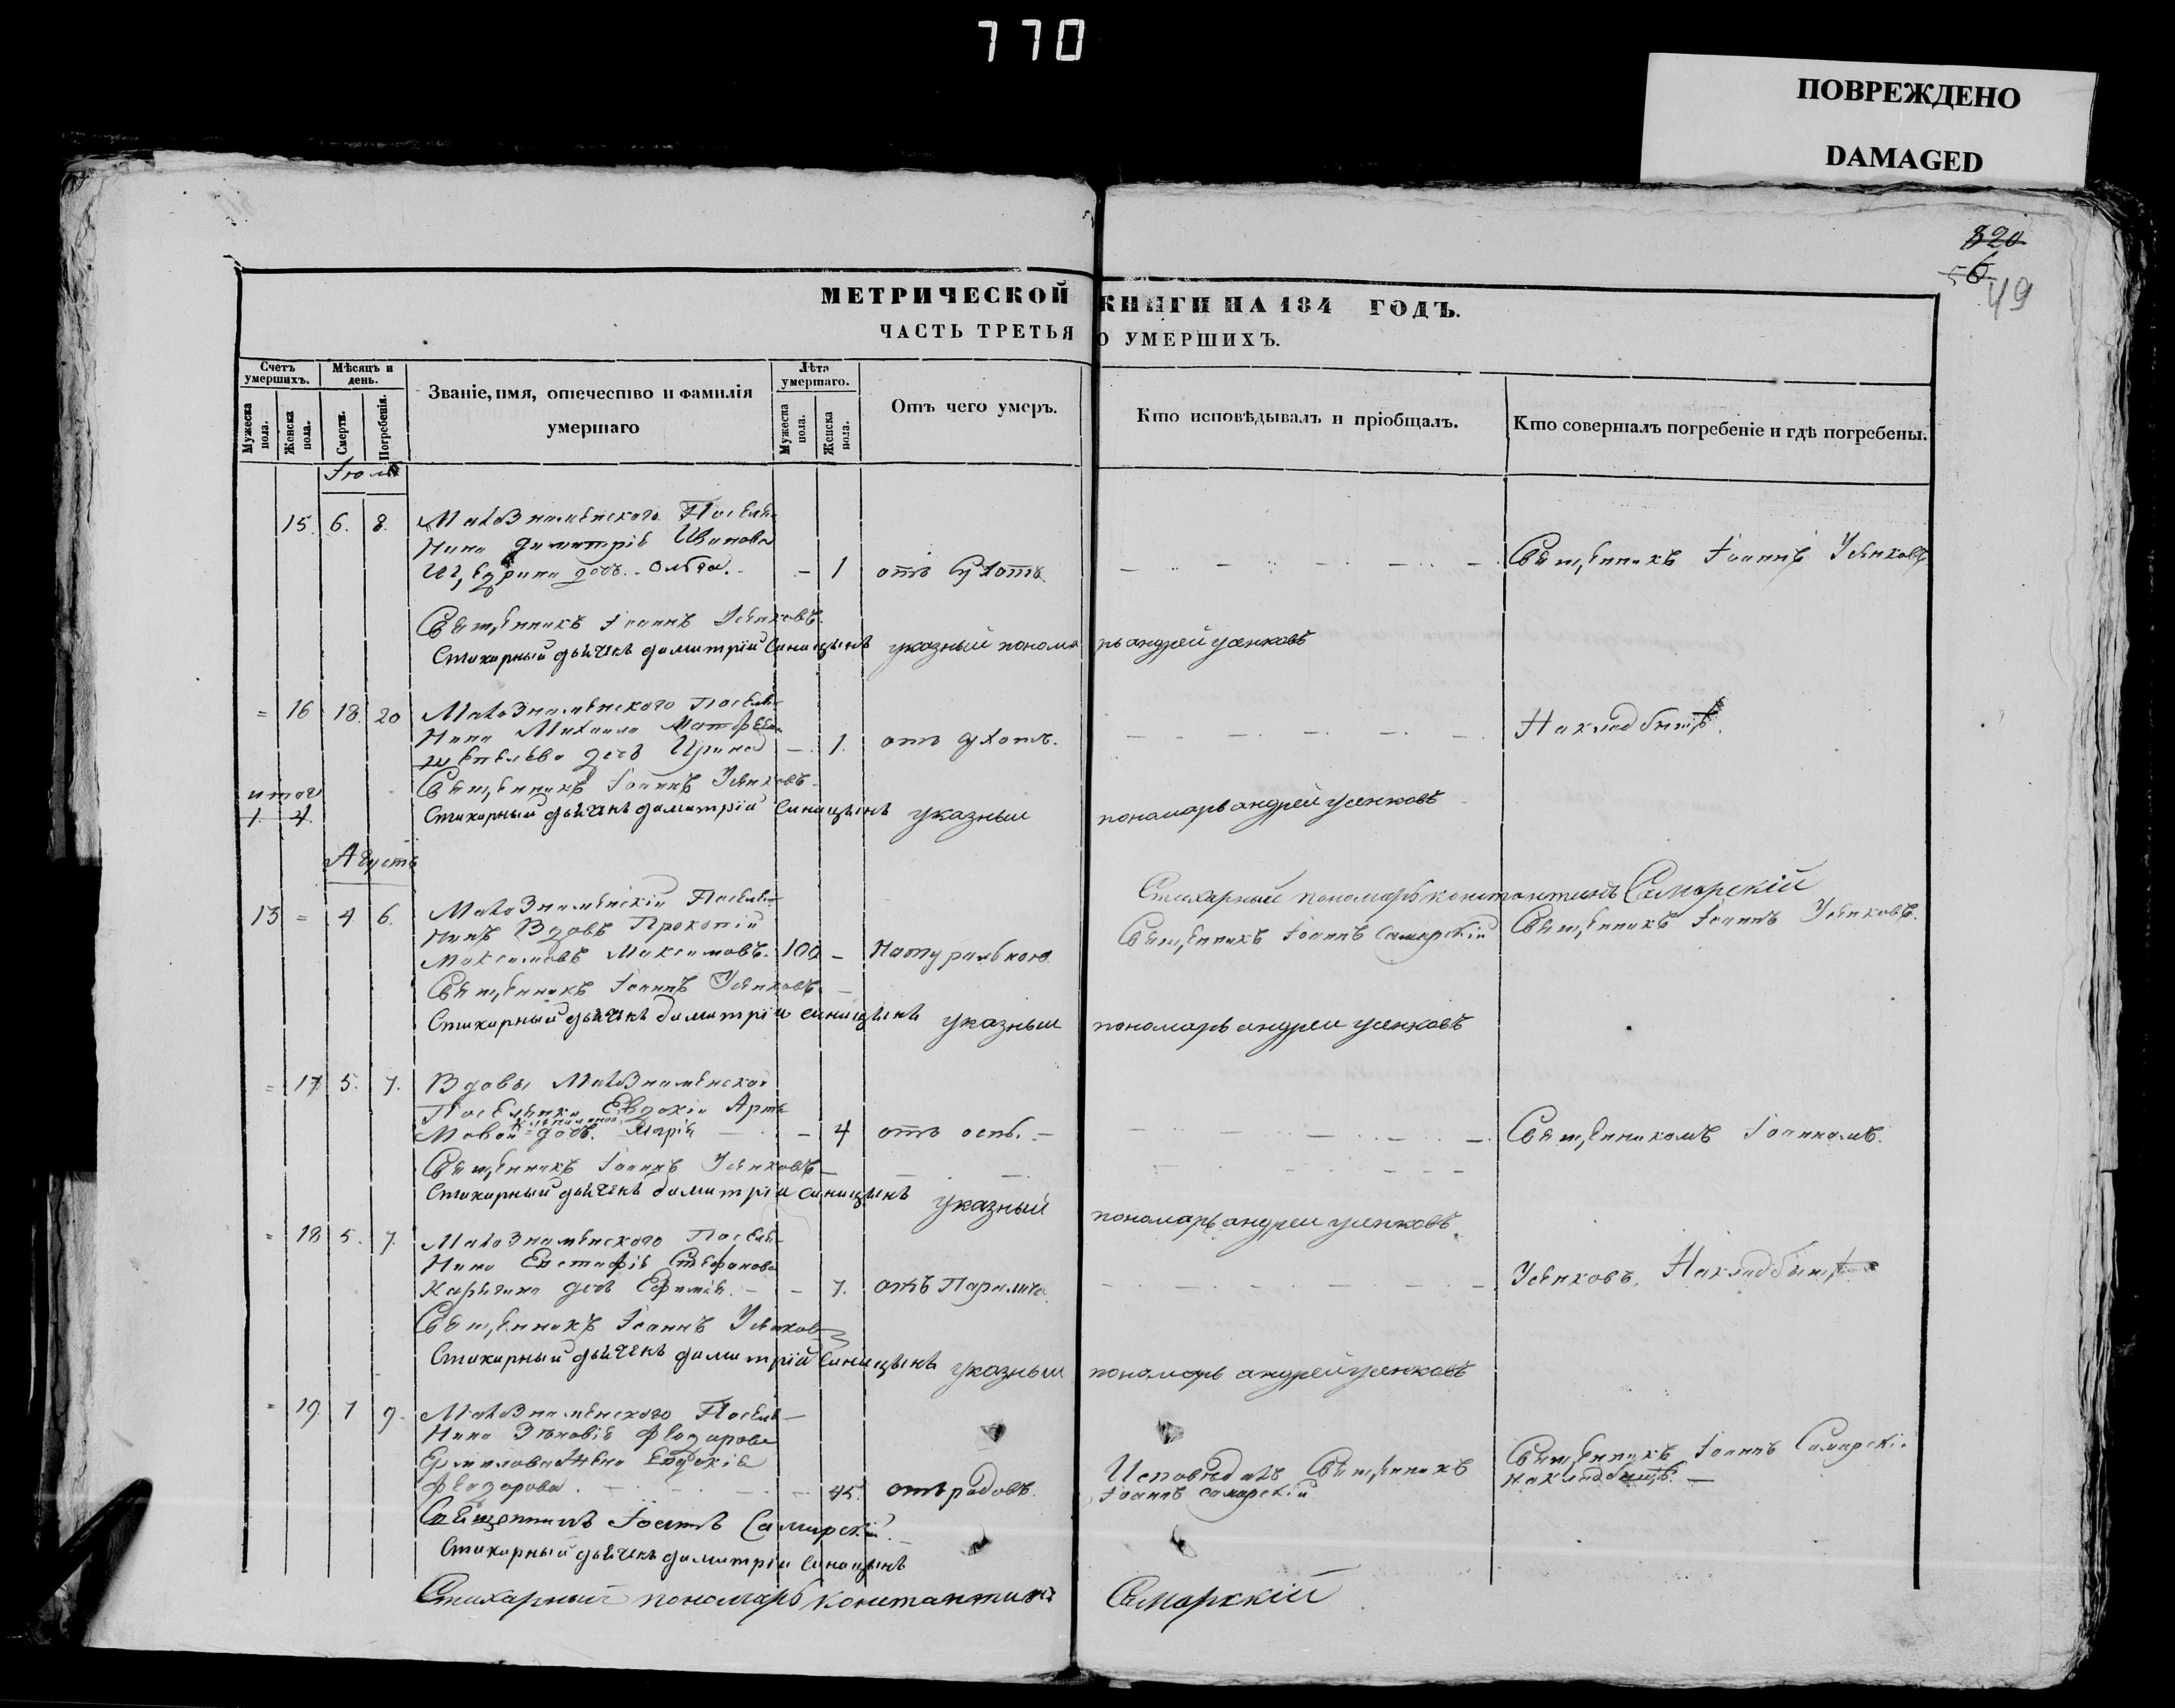 770
ПОВРЕЖДЕНО
DAMAGED
820
56
49
МЕТРИЧЕСКОЙ КНИГИ НА 184 ГОДЪ.
ЧАСТЬ ТРЕТЬЯ О УМЕРШИХЪ.
Счетъ умершихъ.
Мѣсяцъ и день.
Званіе, имя, отечество и фамилія умершаго
Лѣта умершаго.
Отъ чего умеръ.
Кто исповѣдывалъ и пріобщалъ.
Кто совершалъ погребеніе и гдѣ погребены.
Мужеска пола.
Женска пола.
Смерти.
Погребенія.
Мужеска пола.
Женска пола.
15 6. 8. Поселя-
Димитрія Иванова
дочь Ольга. - 1 отъ Священникъ Іоаннъ Усенковъ
Священникъ Іоаннъ Усенковъ.
Стихарный дьячекъ Димитрій Синицынъ указный пономарь андрей усенковъ
= 16 18. 20 Поселя-
нина Михаила
дочь Ирина - 1. отъ На кладбищѣ.
Священникъ Іоаннъ Усенковъ.
итог
1. 4.
Стихарный дьячекъ димитрій Синицынъ указный пономарь андрей усенковъ
Августъ
Стихарный пономарь константинъ Самарскій
13 = 4 6. Поселя-
нинъ Вдовъ Прокопій
Максимовъ Максимовъ. 100 - Натурально Священникъ Іоаннъ Самарскій Священникъ Іоаннъ Усенковъ.
Священникъ Іоаннъ Усенковъ.
Стихарный дьячекъ димитрій синицынъ указный пономарь андрей усенковъ
= 17 5. 7. Вдовы
Поселянки Евдокіи Арте
мовой дочь. Марія - 4 отъ оспы. - Священникомъ Іоанномъ.
Священникъ Іоаннъ Усенковъ
Стихарный дьячекъ димитрій синицынъ указный пономарь андрей усенковъ
= 18 5. 7. Поселя-
нина Евстафія Стефанова
дочь Ефимія. - 7. отъ Паралича Усенковъ. На кладбищѣ
Священникъ Іоаннъ Усенковъ
Стихарный дьячекъ димитрій синицынъ указный пономарь андрей усенковъ
= 19. 7 9. Поселя-
нина Зѣновія Феодорова
жена Евдокія
Феодорова. 45. отъ родовъ. Исповѣдалъ Священникъ Іоаннъ Самарскій Священникъ Іоаннъ Самарскій на кладбищѣ.
Священникъ Іоаннъ Самарскій.
Стихарный дьячекъ димитрій синицынъ
Стихарный пономарь константинъ Самарскій